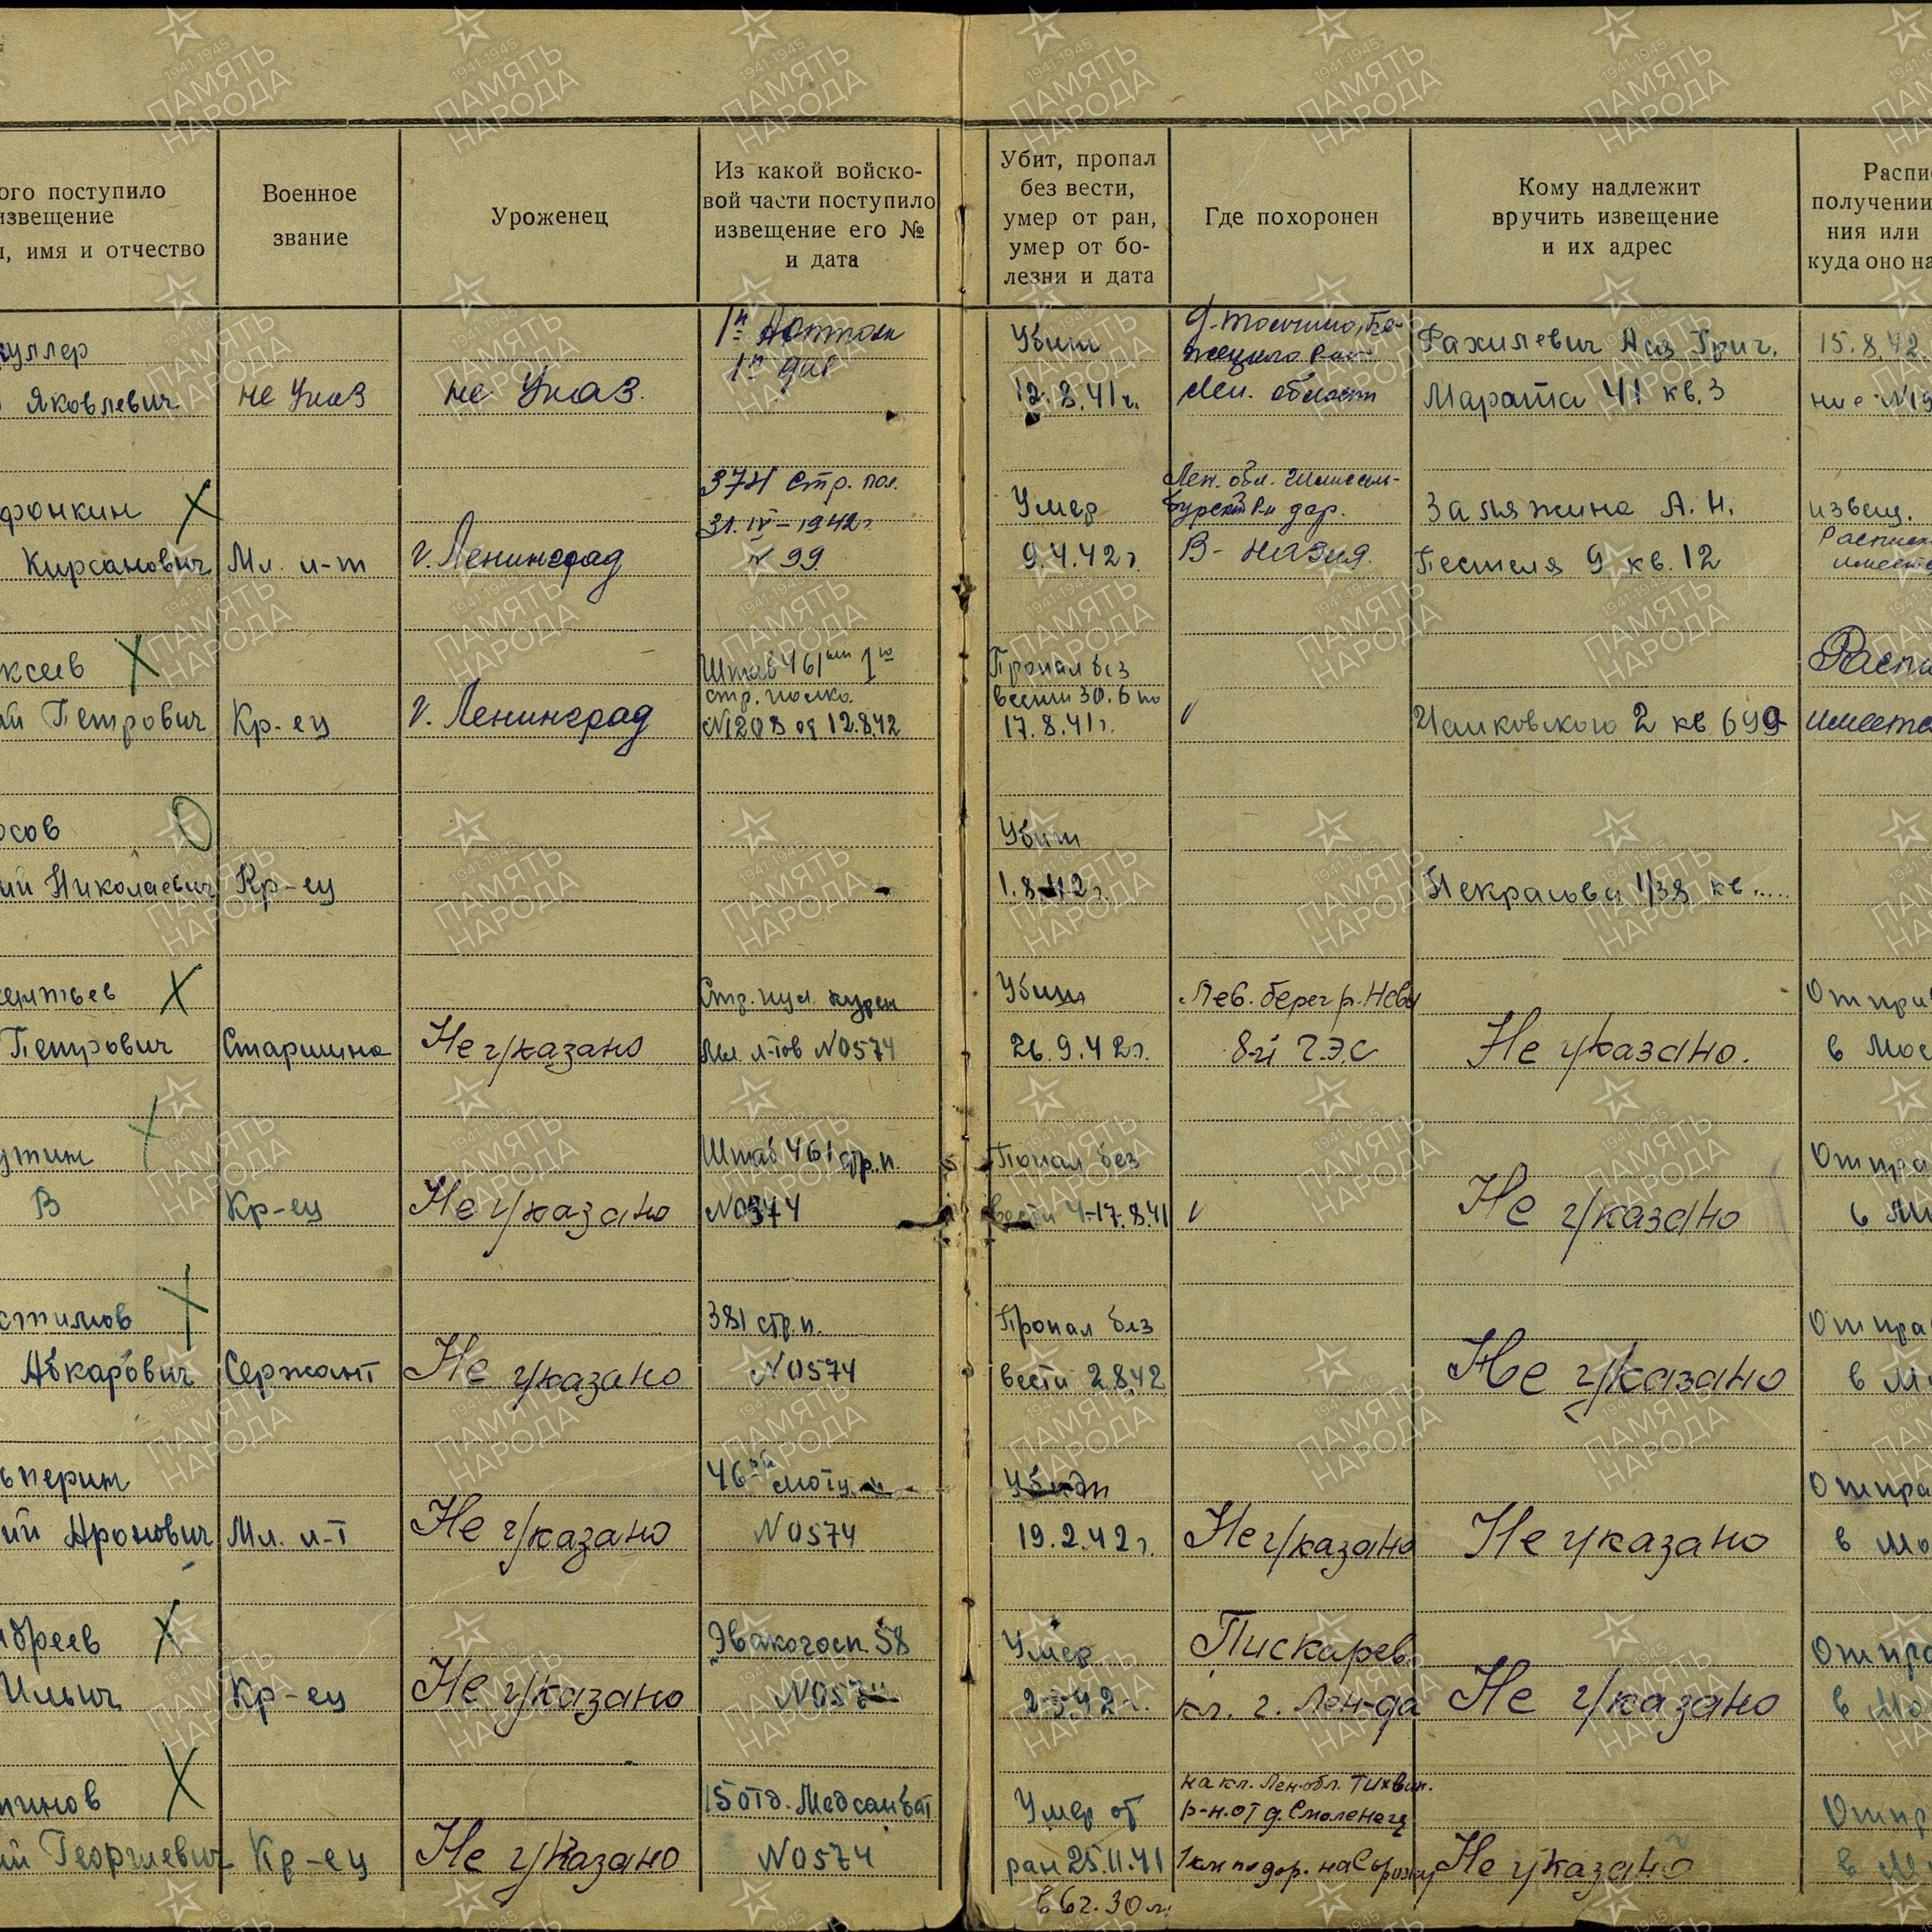 ого поступило
извещение
, имя и отчество
Военное
звание
Уроженец
Из какой войско-
вой части поступило
извещение его №
и дата
Убит, пропал
без вести,
умер от ран,
умер от бо-
лезни и дата
Где похоронен
Кому надлежит
вручить извещение
и их адрес
Распи
получении
ния или
куда оно на
уллер
Яковлевич
не указ
не указ.
1й
Убит
12.8.41г.
Лен. области
Ася Григ.
Марата 41 кв. 3
15.8.42
фонкин
Кирсанович
Мл. л-т
г. Ленинград
374 стр. пол.
31.IV-1942г.
№ 99
Умер
9.4.42г.
Лен. обл. Шлиссель-
дер.
В-Назия.
А. Н.
Пестеля 9 кв. 12
извещ.
ксеев
ий Петрович
Кр-ец
г. Ленинград
Штаб 461
стр. полка
№1208 от 12.8.42
Пропал без
вести 30.6 по
17.8.41г.
Чайковского 2 кв
Распи
имеетс
осов
ий Николаевич
Кр-ец
Убит
1.8.42г.
Некрасова 1/38 кв....
ентьев
Петрович
Старшина
Не указано
Стр. пул. курсы
Мл. л-тов №0574
Убит
26.9.42г.
Лев. берег р. Невы
8-й Г.Э.С
Не указано.
Отпра
в Мос
утин
В
Кр-ец
Не указано
Штаб 461 стр.п.
Попал без
вести 4-17.8.41
Не указано
Отпра
стимов
Абкарович
Сержант
Не указано
381 стр.п.
№0574
Пропал без
вести 2.8.42
Не указано
Отпра
в М
ьперин
ий Аронович
Мл. л-т
Не указано
46
№0574
Убит
19.2.42г.
Не указано
Не указано
Отпра
в Мо
ндреев
Ильич
Кр-ец
Не указано
Эвакогосп 58
№0574
Умер
2-5.42г.
Пискарев.
кл. г. Лен-да
Не указано
Отпра
в Мо
инов
ий Георгиевич
Кр-ец
Не указано
15 отд. Медсанбат
№0574
Умер от
ран 25.11.41
в 6ч. 30м.
на кл. Лен.обл. Тихвин.
р-н. от д.
1 км по дор. на
Не указано
Отпр
в М
1941-1945
ПАМЯТЬ
НАРОДА